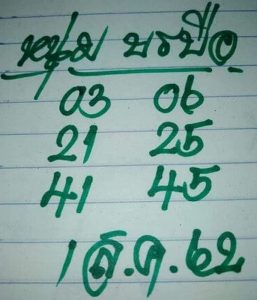 หนุ่ม บรบือ
03 06
21 25
41 45
1 ส.ค.62